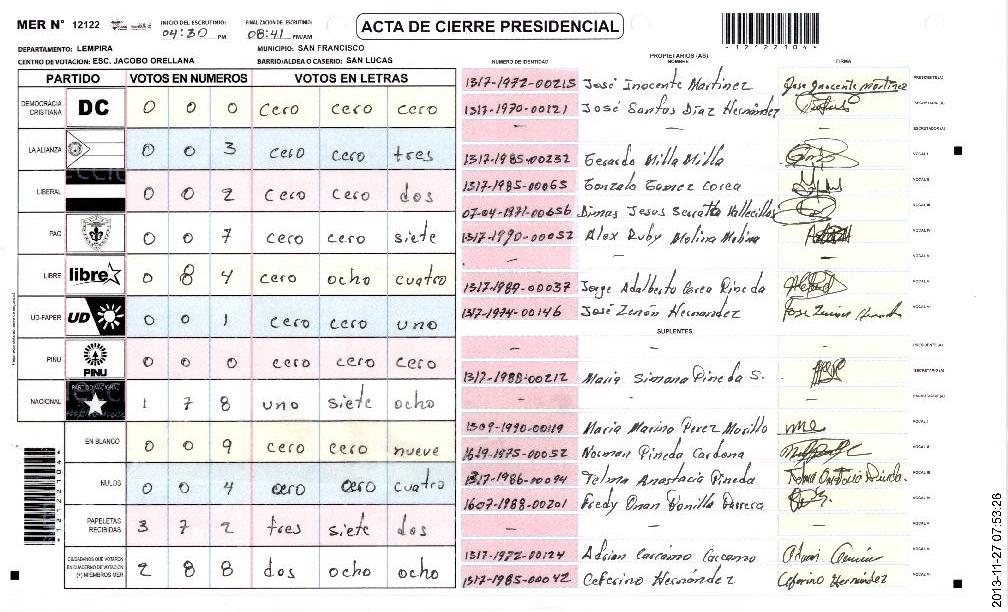 MER N° 12122 INICIO DEL ESCRUTINIO: 04:30 PM FINALIZACION DEL ESCRUTINIO: 08:41 PM/AM ACTA DE CIERRE PRESIDENCIAL
12122104
DEPARTAMENTO: LEMPIRA MUNICIPIO: SAN FRANCISCO
CENTRO DE VOTACION: ESC. JACOBO ORELLANA BARRIO/ALDEA O CASERIO: SAN LUCAS
PROPIETARIOS (AS)
NUMERO DE IDENTIDAD NOMBRE FIRMA
PARTIDO VOTOS EN NUMEROS VOTOS EN LETRAS
DEMOCRACIA CRISTIANA DC 0 0 0 cero cero cero
LA ALIANZA 0 0 3 cero cero tres
LIBERAL 0 0 2 cero cero dos
PAC 0 0 7 cero cero siete
LIBRE libre 0 8 4 cero ocho cuatro
UD-FAPER UD 0 0 1 cero cero uno
PINU PINU 0 0 0 cero cero cero
NACIONAL 1 7 8 uno siete ocho
EN BLANCO 0 0 9 cero cero nueve
NULOS 0 0 4 cero cero cuatro
PAPELETAS RECIBIDAS 3 7 2 tres siete dos
CIUDADANOS QUE VOTARON EN CUADERNO DE VOTACION (+) MIEMBROS MER 2 8 8 dos ocho ocho
1317-1972-00215 José Inocente Martinez Jose Inocente martinez PRESIDENTE(A)
1317-1970-00121 José Santos Diaz Hernández SECRETARIO(A)
- - - ESCRUTADOR(A)
1317-1985-00232 Gerardo Milla Milla VOCAL I
1317-1985-00065 Gonzalo Gomez Corea VOCAL II
07-04-1971-00656 Dimas Jesus Serratto Vallecillos VOCAL III
1317-1990-00052 Alex Ruby Molina Molina VOCAL IV
- - - VOCAL V
1317-1989-00037 Jorge Adalberto Corea Pineda VOCAL V
1317-1974-00146 José Zenón Hernandez VOCAL VI
SUPLENTES
- - - PRESIDENTE(A)
1317-1988-00212 Maria Simona Pineda S. SECRETARIO(A)
- - - ESCRUTADOR(A)
1309-1990-00119 Maria Marina Perez Murillo VOCAL I
1619-1975-00052 Norman Pineda Cardona VOCAL II
1317-1986-00094 Telma Anastacia Pineda VOCAL III
1607-1988-00201 Fredy Oman Bonilla Barrera VOCAL IV
- - - VOCAL V
1317-1972-00124 Adrian Carcamo Carcamo VOCAL V
1317-1985-00042 Ceferino Hernández Ceferino Hernández VOCAL VI
2013-11-27 07:53:26